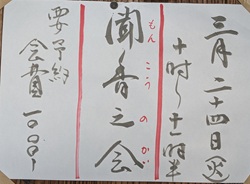 三月二十四日(火)
十時〜十一時半
聞香之会
もんこうのかい
要予約
会費一〇〇〇-